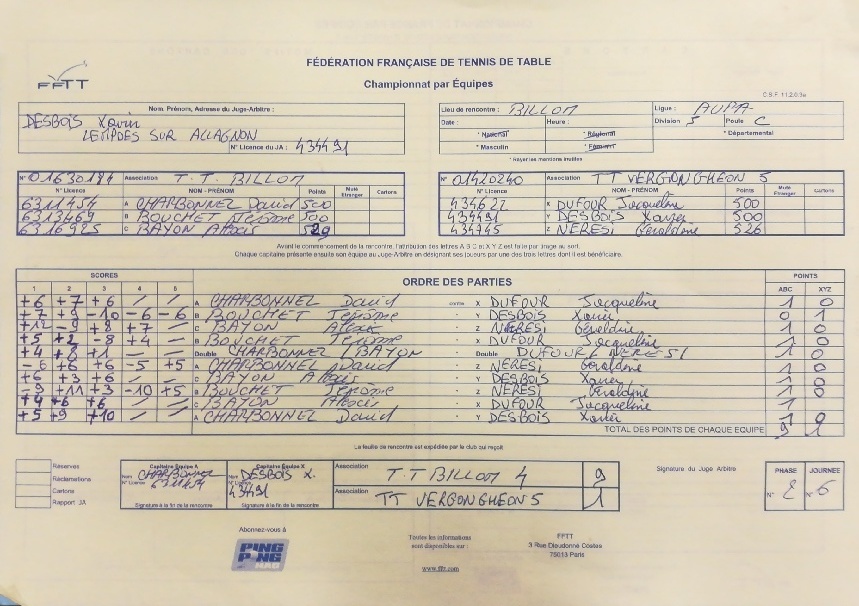 FÉDÉRATION FRANÇAISE DE TENNIS DE TABLE
FFTT
Championnat par Équipes
C.S.F. 11.2.0.3a
Nom, Prénom, Adresse du Juge-Arbitre :
DESBOIS Xavier
LEMPDES SUR ALLAGNON
N° Licence du JA : 434491
Lieu de rencontre : BILLOM Ligue : AUPA
Date : Heure : Division 5 Poule C
* National * Régional * Départemental
* Masculin * Féminin
* Rayer les mentions inutiles
N° 01630184 Association T.T. BILLOM
N° Licence NOM - PRÉNOM Points Muté Etranger Cartons
6311454 A CHARBONNEL David 500
6313469 B BOUCHET Jérôme 500
6316925 C BAYON Alexis 529
N° 01420240 Association TT VERGONGHEON 5
N° Licence NOM - PRÉNOM Points Muté Etranger Cartons
434622 X DUFOUR Jacqueline 500
434491 Y DESBOIS Xavier 500
434745 Z NERESI Géraldine 526
Avant le commencement de la rencontre, l'attribution des lettres A B C et X Y Z est faite par tirage au sort.
Chaque capitaine présente ensuite son équipe au Juge-Arbitre en désignant ses joueurs par une des trois lettres dont il est bénéficiaire.
SCORES ORDRE DES PARTIES POINTS
1 2 3 4 5 ABC XYZ
+6 +7 +6 / / A CHARBONNEL David contre X DUFOUR Jacqueline 1 0
+7 +9 -10 -6 -6 B BOUCHET Jérôme " Y DESBOIS Xavier 0 1
+12 -9 +8 +7 / C BAYON Alexis " Z NERESI Géraldine 1 0
+5 +2 -8 +4 / B BOUCHET Jérôme " X DUFOUR Jacqueline 1 0
+4 +8 +1 / / Double CHARBONNEL / BAYON " Double DUFOUR / NERESI 1 0
-6 +6 +6 -5 +5 A CHARBONNEL David " Z NERESI Géraldine 1 0
+6 +3 +6 / / C BAYON Alexis " Y DESBOIS Xavier 1 0
-9 +11 +3 -10 +5 B BOUCHET Jérôme " Z NERESI Géraldine 1 0
+4 +6 +6 / / C BAYON Alexis " X DUFOUR Jacqueline 1
+5 +9 +10 / / A CHARBONNEL David " Y DESBOIS Xavier 1 0
TOTAL DES POINTS DE CHAQUE EQUIPE 9 1
La feuille de rencontre est expédiée par le club qui reçoit
Réserves
Réclamations
Cartons
Rapport JA
Capitaine Équipe A
Nom CHARBONNEL
N° Licence 6311454
Signature à la fin de la rencontre
Capitaine Équipe X
Nom DESBOIS X.
N° Licence 434491
Signature à la fin de la rencontre
Association T.T BILLOM 4 9
Association TT VERGONGHEON 5 1
Signature du Juge Arbitre
PHASE JOURNEE
N° 2 N° 6
Abonnez-vous à
PING PONG MAG
Toutes les informations
sont disponibles sur :
www.fftt.com
FFTT
3 Rue Dieudonné Costes
75013 Paris